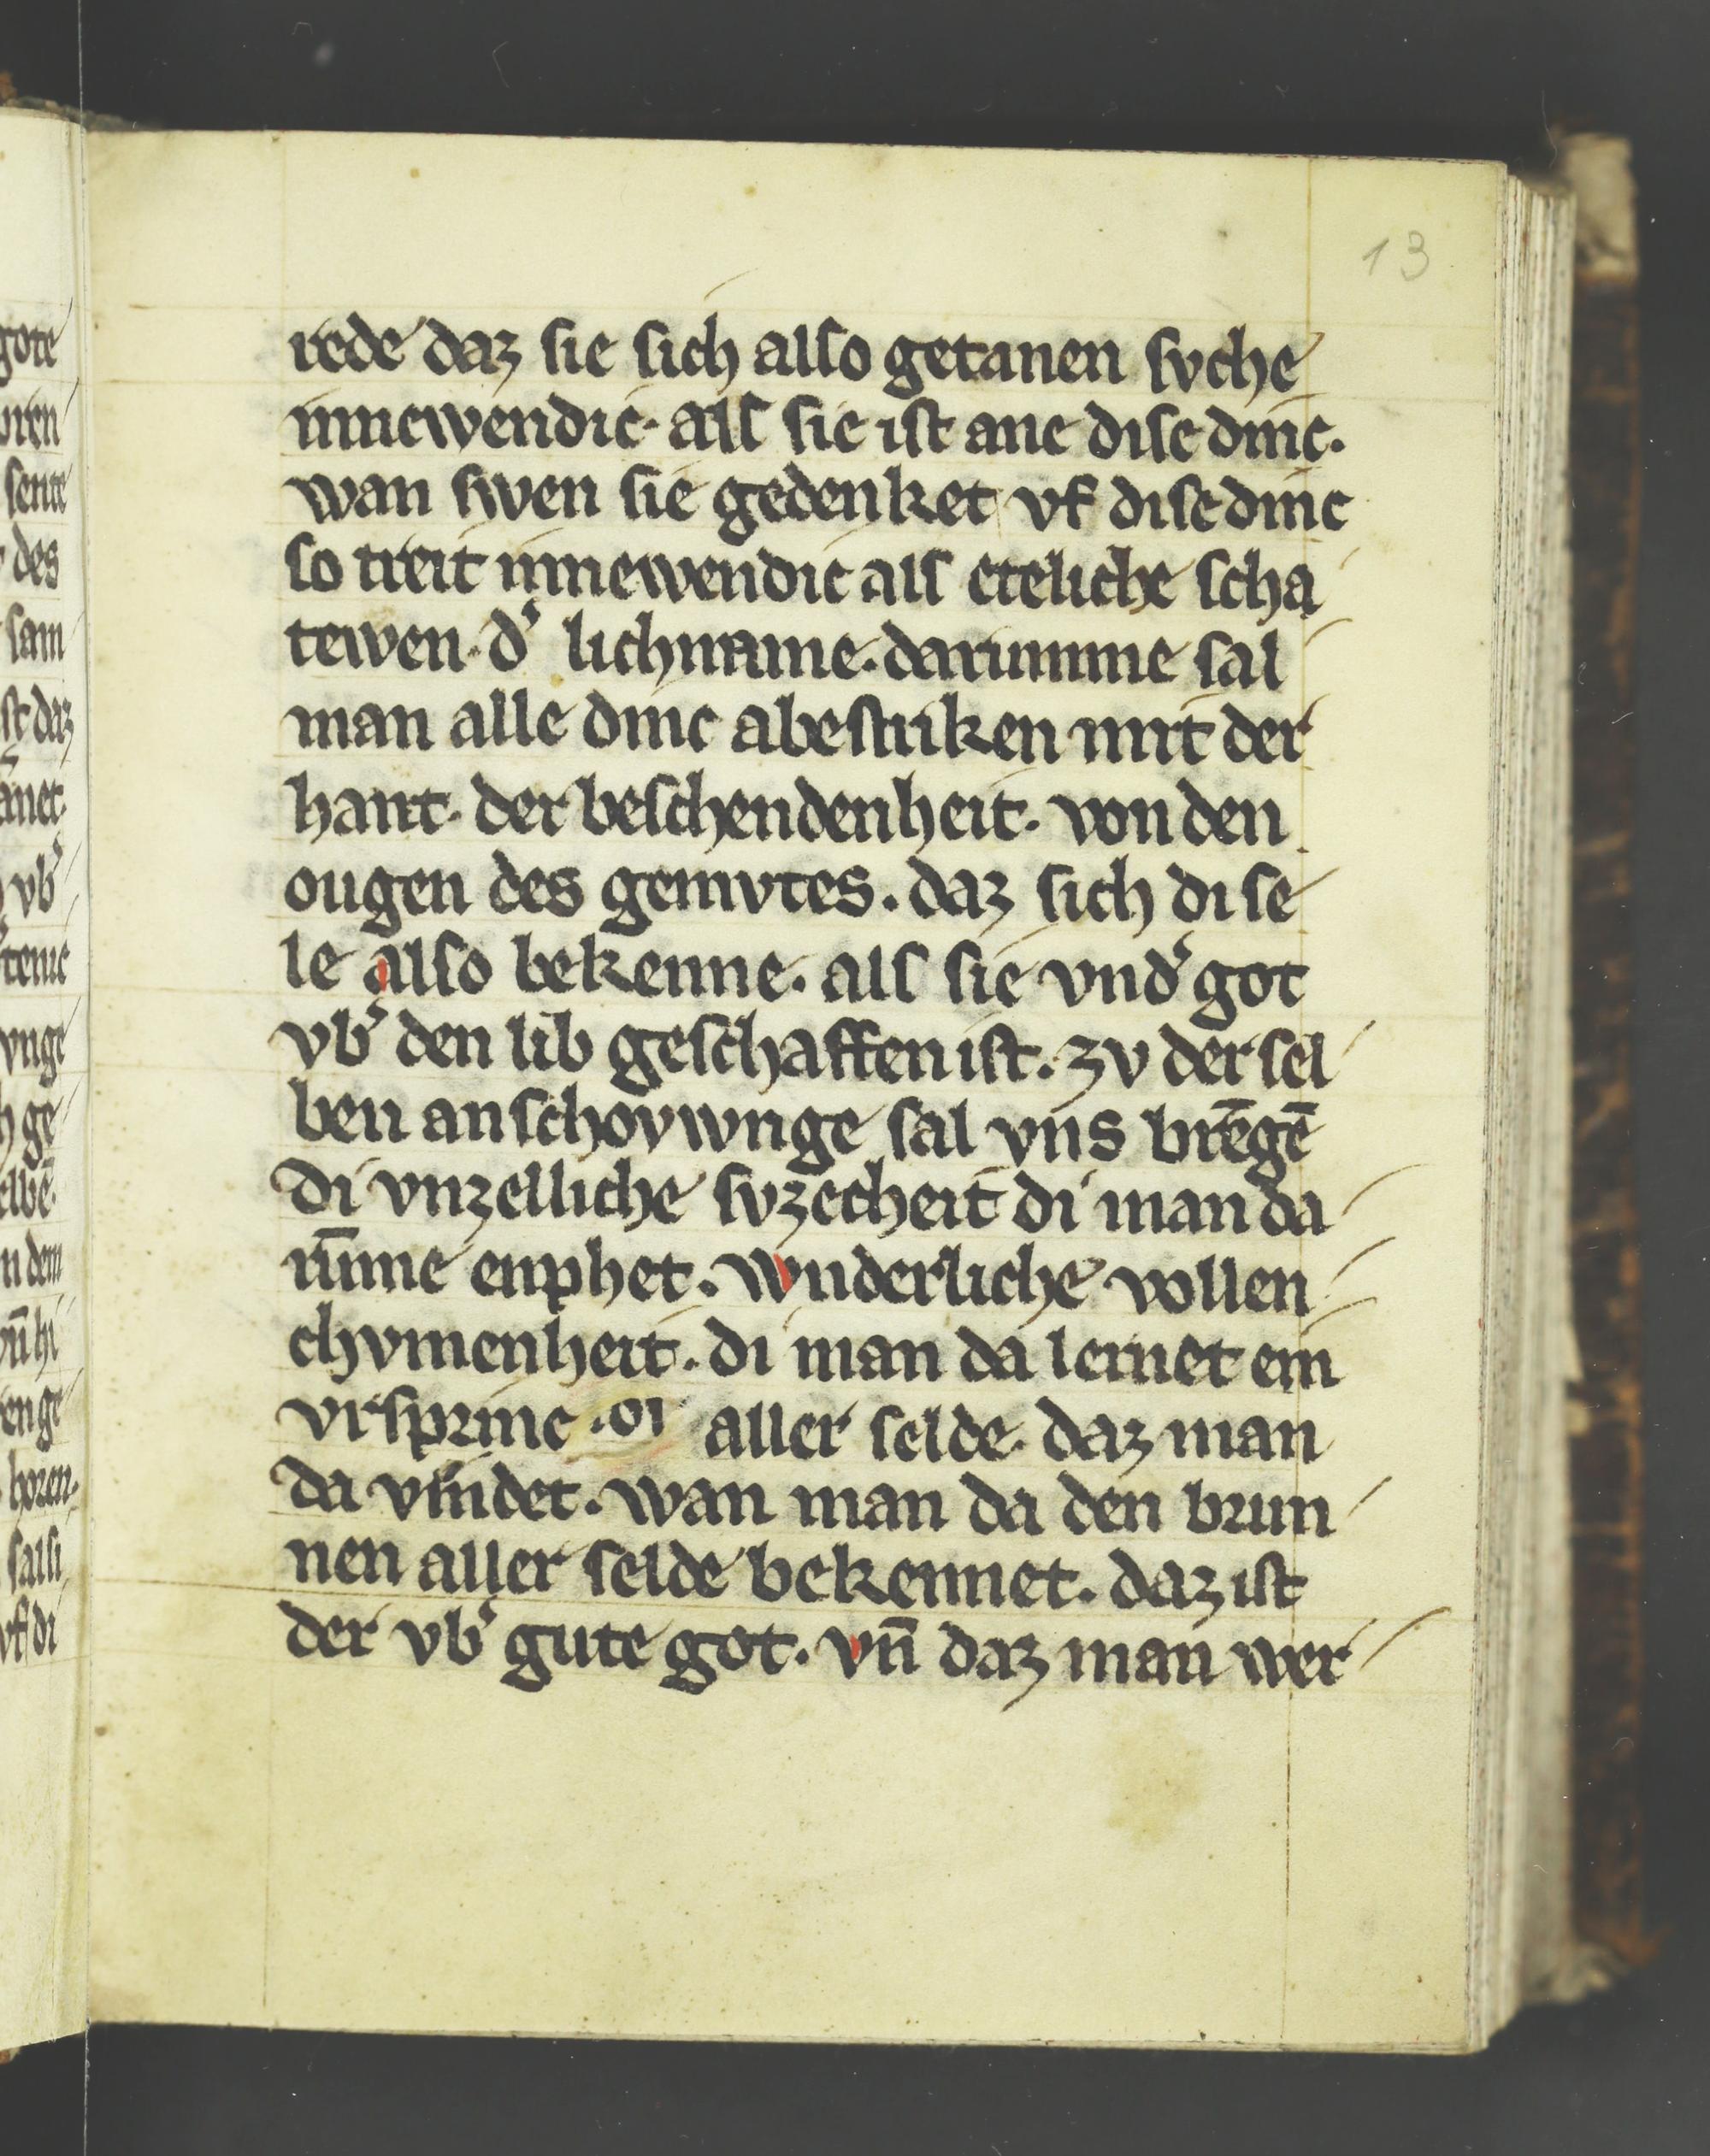 13
rede daz sie sich also getanen svche
innewendic. als sie ist ane dise dinc.
wan swen sie gedenket vf dise dinc
so treit innewendic als eteliche scha
tewen. d͛ lichname. darumme sal
man alle dinc abestriken mit der
hant. der beschendenheit. von den
ougen des gemvtes. daz sich di se
le also bekenne. als sie vnd͛ got
vb͛ den lib geschaffen ist. zv der sel
ben anschovwnge sal vns brēgē
di vnzelliche svzecheit di man da
ūmme enphet. wnderliche vollen
chvmenheit. di man da lernet ein
vrsprinc .di aller selde. daz man
da vindet. wan man da den brun
nen aller selde bekennet. daz ist
der vb͛ gute got. vn̄ daz man wer